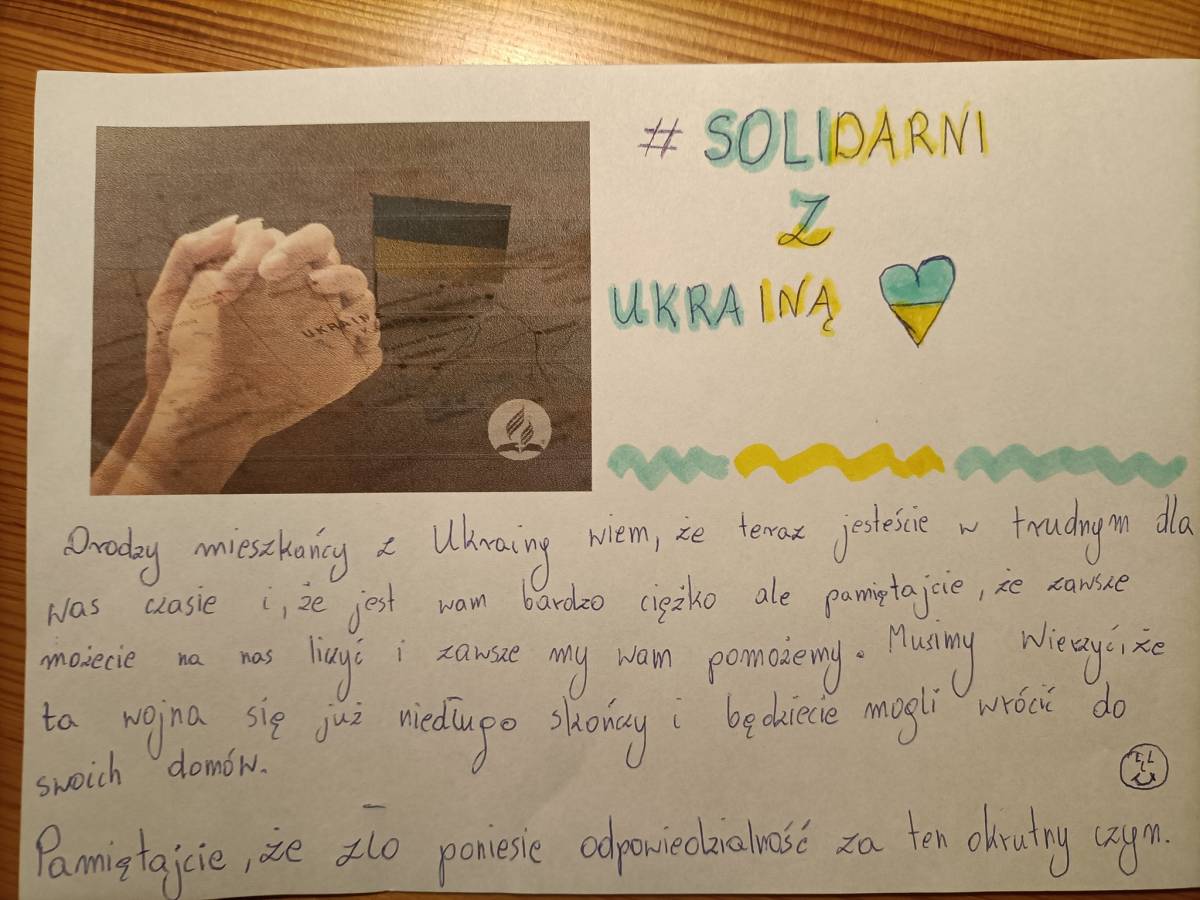 # SOLIDARNI
Z
UKRAINĄ
UKRAIN
Drodzy mieszkańcy z Ukrainy wiem, że teraz jesteście w trudnym dla
was czasie i, że jest wam bardzo ciężko ale pamiętajcie, że zawsze
możecie na nas liczyć i zawsze my wam pomożemy. Musimy wierzyć, że
ta wojna się już niedługo skończy i będziecie mogli wrócić do
swoich domów.
Pamiętajcie, że zło poniesie odpowiedzialność za ten okrutny czyn.